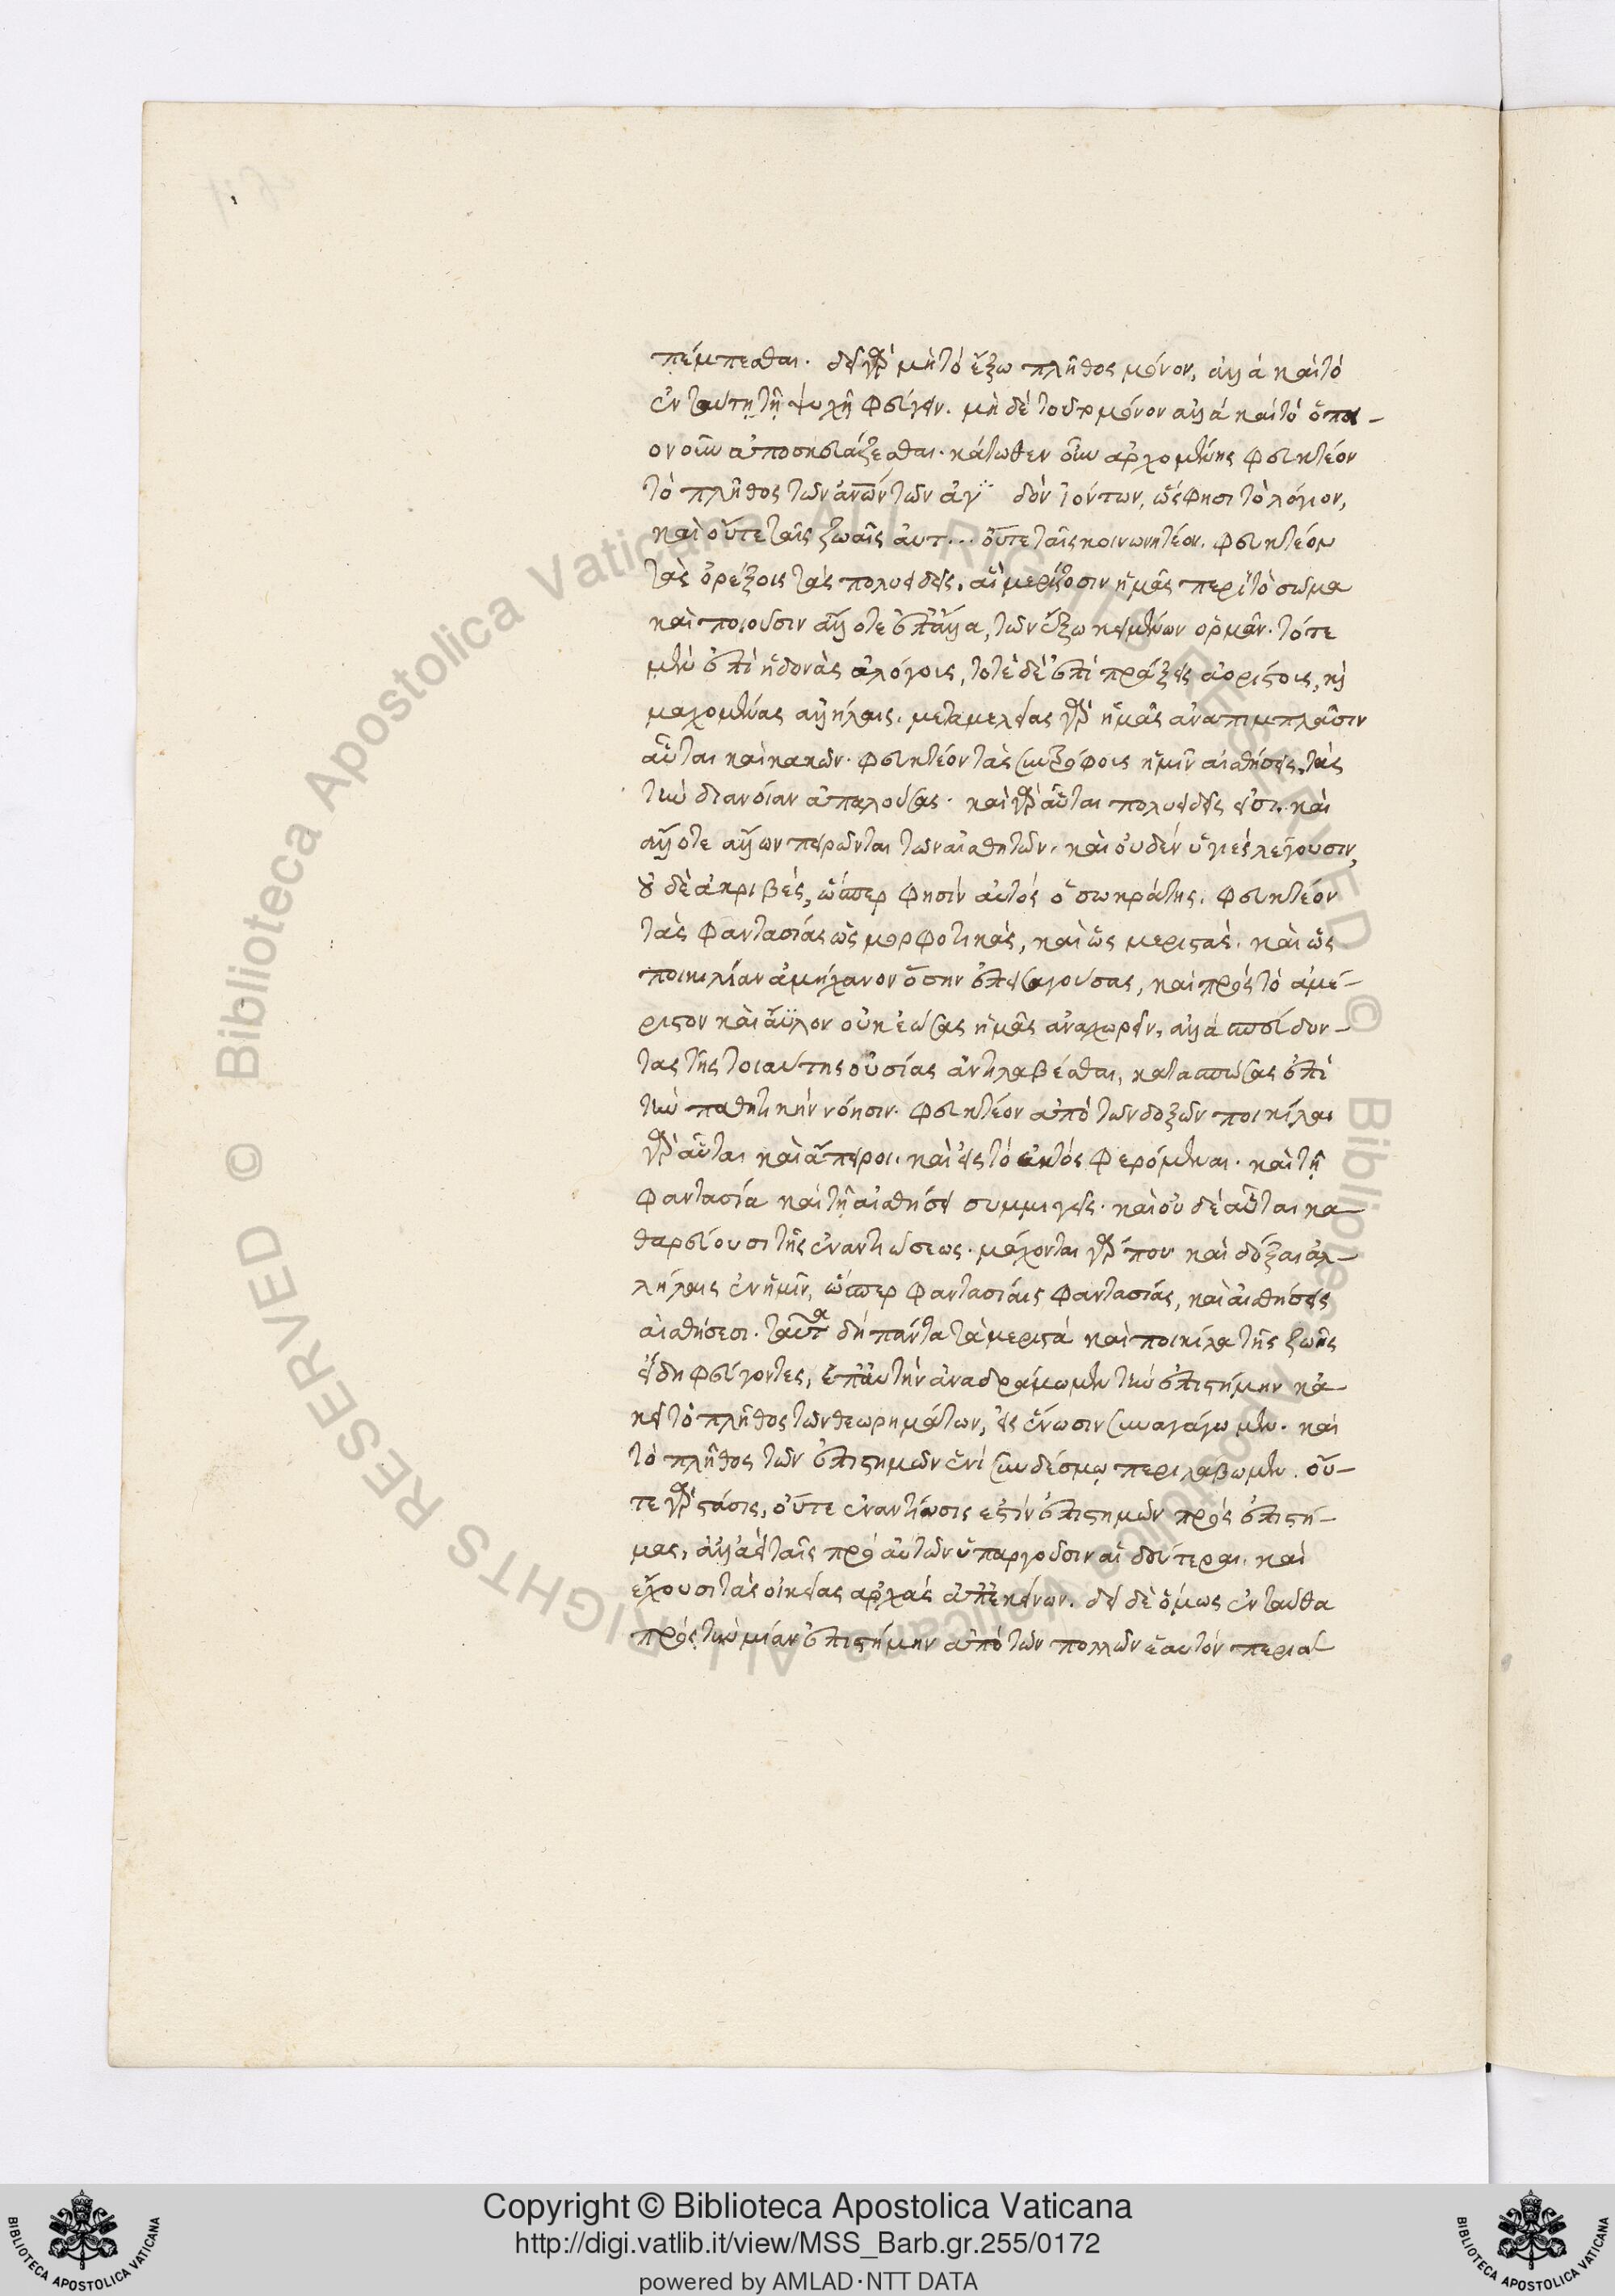 πέμπεσθαι. δεῖ γὰρ μὴ τὸ ἔξω πλῆθος μόνον, ἀλλὰ καὶ τὸ
ἐν ταύτῃ τῇ ψυχῇ φεύγειν. μὴ δὲ τοῦτο μόνον ἀλλὰ καὶ τὸ ὅποι-
ον οὖν ἀποσκευάζεσθαι. κάτωθεν οὖν ἀρχομένης φευκτέον
τὸ πλῆθος τῶν ἀνῶν τῶν ἀγ¨ δὸν ἰόντων, ὥς φησι τὸ λόγιον,
καὶ οὔτε ταῖς ζωαῖς αὐτ... οὔτε ταῖς κοινωνητέον. φευκτέον
τὰς ὀρέξεις τὰς πολυειδεῖς, αἳ μερίζουσιν ἡμᾶς περὶ τὸ σῶμα
καὶ ποιοῦσιν ἄλλοτε ἐπ' ἄλλα, τῶν ἔξω κειμένων ὁρμᾶν. τότε
μὲν ἐπὶ ἡδονὰς ἀλόγοις, τοτὲ δὲ ἐπὶ πράξεις ἀορίστοις, καὶ
μαχομένας ἀλλήλαις. μεταμελείας γὰρ ἡμᾶς ἀναπιμπλᾶσιν
αὗται καὶ κακῶν. φευκτέον τὰς συντρόφοις ἡμῖν αἰσθήσεις, τὰς
τὴν διανοίαν ἀπαλούσας. καὶ γὰρ αὗται πολυειδεῖς εἰσι. καὶ
ἄλλοτε ἄλλων πειρῶνται τῶν αἰσθητῶν. καὶ οὐδὲν ὑγιὲς λέγουσιν,
οὐ δὲ ἀκριβές, ὥσπερ φησὶν αὐτὸς ὁ σωκράτης. φευκτέον
τὰς φαντασίας ὡς μορφοτικὰς, καὶ ὡς μεριστὰς. καὶ ὡς
ποικιλίαν ἀμήχανον ὅσην ἐπεισαγούσας, καὶ πρὸς τὸ ἀμέ-
ριστον καὶ ἄϋλον οὐκ ἐώσας ἡμᾶς ἀναχωρεῖν, ἀλλὰ σπεύδον-
τας τῆς τοιαύτης οὐσίας ἀντιλαβέσθαι, κατασπώσας ἐπὶ
τὴν παθητικὴν νόησιν. φευκτέον ἀπὸ τῶν δοξῶν ποικίλαι
γὰρ αὗται καὶ ἄπειροι. καὶ εἰς τὸ ἐκτὸς φερόμεναι. καὶ τῇ
φαντασία καὶ τῇ αἰσθήσει συμμιγεῖς. καὶ οὐ δὲ αὗται κα-
θαρεύουσι τῆς ἐναντιώσεως. μάχονται γάρ που καὶ δόξαι ἀλ-
λήλαις ἐν ἡμῖν, ὥσπερ φαντασίαις φαντασίας, καὶ αἰσθήσεις
αἰσθήσεσι. ταῦτα δὴ πάντα τὰ μεριστὰ καὶ ποικίλα τῆς ζωῆς
εἴδη φεύγοντες, ἐπ' αὐτὴν ἀναδράμωμεν τὴν ἐπιστήμην κἀ-
κεῖ τὸ πλῆθος τῶν θεωρημάτων, εἰς ἕνωσιν συναγάγωμεν. καὶ
τὸ πλῆθος τῶν ἐπιστημῶν ἑνὶ συνδέσμῳ περιλαβωμεν. οὔ-
τε γὰρ στάσις, οὔτε ἐναντίωσις ἐστὶν ἐπιστημῶν πρὸς ἐπιστή-
μας, ἀλλ' ἀεὶ ταῖς πρὸ αὐτῶν ὑπαργοῦσιν αἱ δεύτεραι. καὶ
ἔχουσι τὰς οἰκείας ἀρχὰς ἀπ' ἐκείνων. δεῖ δὲ ὅμως ἐνταῦθα
πρὸς τὴν μίαν ἐπιστήμην ἀπὸ τῶν πολλῶν ἑαυτὸν περιαγ
© Biblioteca Apostolica Vaticana ALL RIGHTS RESERVED
© Biblioteca Apostolica Vaticana ALL RIGHTS RESERVED
BIBLIOTECA APOSTOLICA VATICANA
Copyright © Biblioteca Apostolica Vaticana
http://digi.vatlib.it/view/MSS_Barb.gr.255/0172
powered by AMLAD·NTT DATA
BIBLIOTECA APOSTOLICA VATICANA